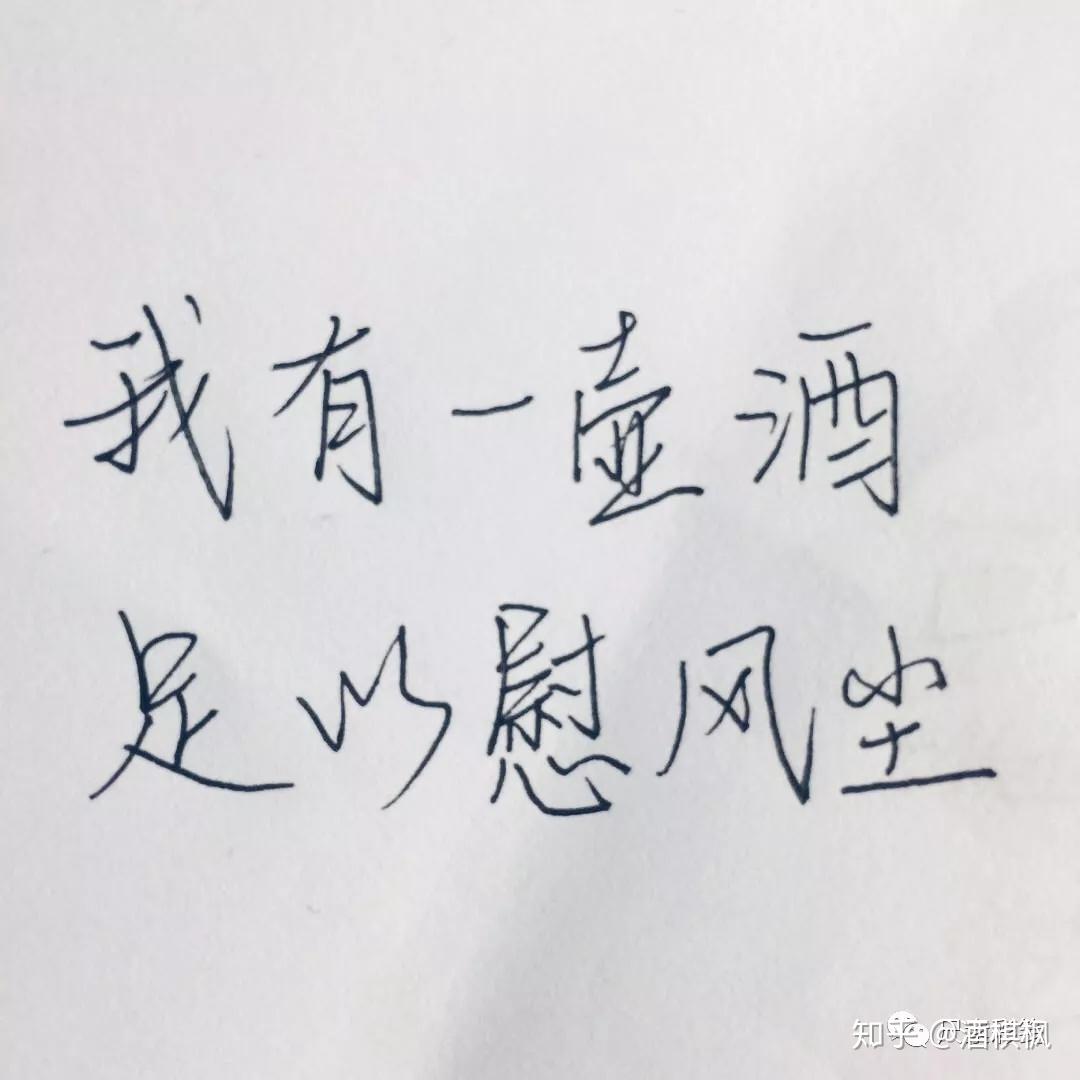 我有一壶酒
足以慰风尘
知乎 @酒稘枫